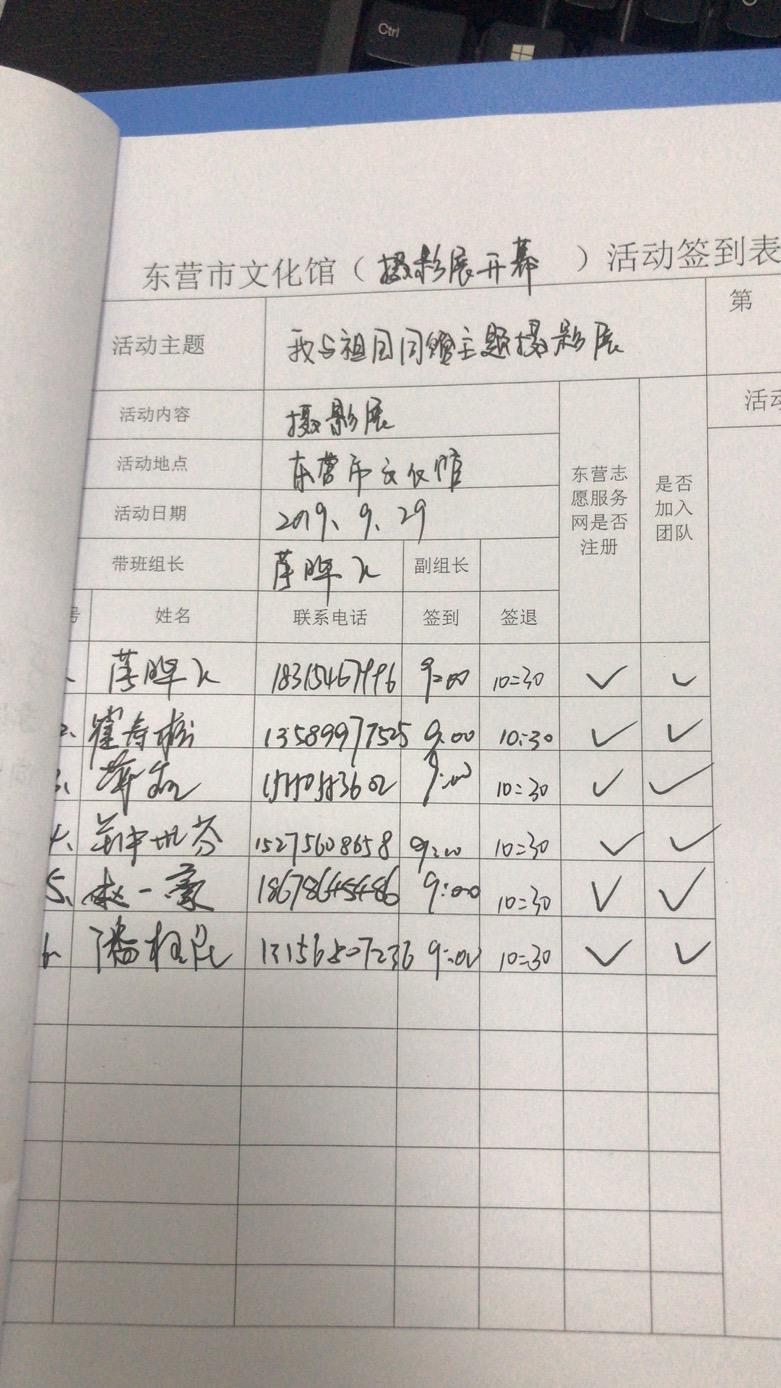 Ctrl
东营市文化馆（摄影展开幕）活动签到表
活动主题 我与祖国同 主题摄影展 第
活动内容 摄影展 东营志愿服务网是否注册 是否加入团队 活动
活动地点 东营市文化馆
活动日期 2019、9、29
带班组长 副组长
号 姓名 联系电话 签到 签退
9:00 10:30 ✓ ✓
2、 13589977525 9:00 10:30 ✓ ✓
3、 9:00 10:30 ✓ ✓
4、 15275608658 9:00 10:30 ✓ ✓
5、 赵一豪 18678645486 9:00 10:30 ✓ ✓
6、 13156507236 9:00 10:30 ✓ ✓